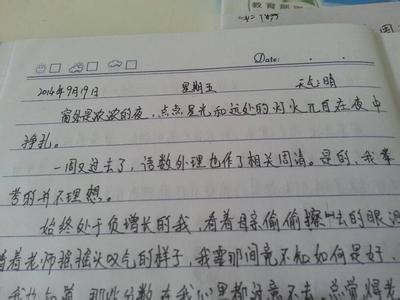 教育
Date:
2014年9月19日 星期五 天气:晴
窗外是浓浓的夜,点点星光和远处的灯火兀自在夜中
挣扎。
一周又过去了,语数外理也作了相关周清。是的,我考的并不理想。
始终处于负增长的我,看着母亲偷偷擦去的眼泪
看着老师摇摇头叹气的样子,我霎那间竟不知如何是好,
那些分数在我心里都